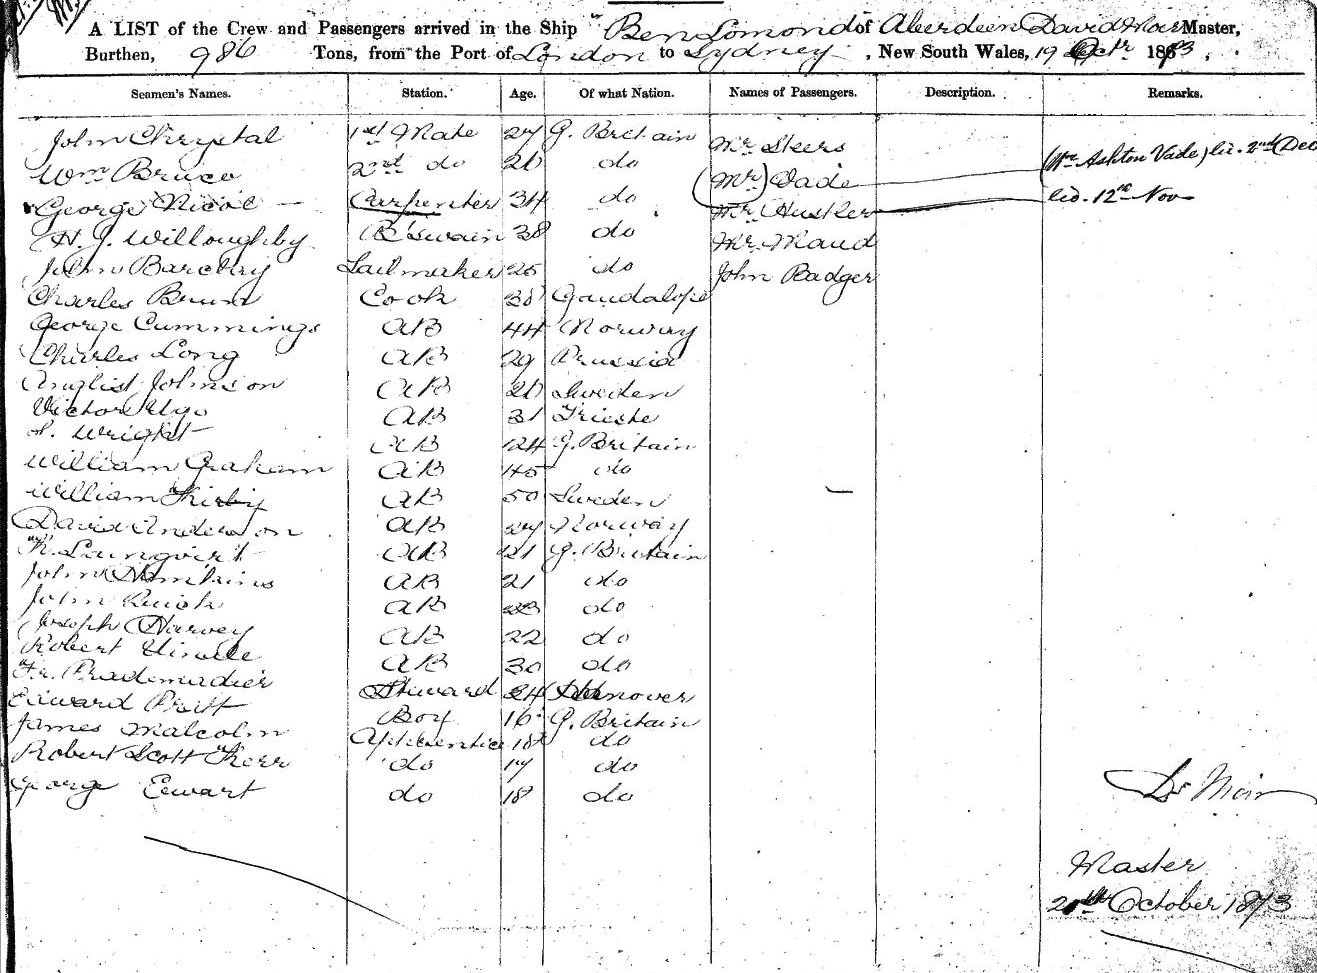 A LIST of the Crew and Passengers arrived in the Ship "Ben Lomond of Aberdeen David Moir Master,
Burthen, 986 Tons, from the Port of London to Sydney, New South Wales, 19 Octr 1873.
Seamen's Names. Station. Age. Of what Nation. Names of Passengers. Description. Remarks.
John Chrystal 1st Mate 27 G. Britain Mr Skers
Wm Bruce 2nd do do (Mr) Vade (Mr Ashton Vade) lic. 2nd Dec
George Nicol Carpenter 34 do Mr Husker lic. 12th Nov
H. J. Willoughby B'swain 38 do Mr Maud
John Barclay Sailmaker 25 do John Badger
Charles Brun Cook Gaudalope
George Cummings AB 44 Norway
Charles Long AB 29 Prussia
Johnson AB Sweden
Victor Ugo AB 31 Trieste
Wright AB 24 G. Britain
William Graham AB 45 do
William Kirby AB 50 Sweden
David Anderson AB 27 Norway
AB 21 G. Britain
John AB 21 do
John Quick AB do
Joseph Harvey AB 22 do
Robert AB 30 do
Fr. Prademadier Steward 24 Hanover
Edward Pratt Boy 16 G. Britain
James Malcolm Apprentice 18 do
Robert Scott Kerr do 17 do
George Ewart do 18 do
D Moir
Master
October 1873